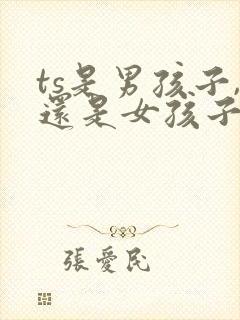 ts是男孩子,
還是女孩子
張愛民